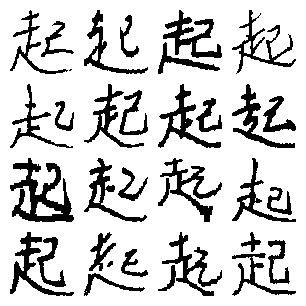 起起起起
起起起起
起起起起
起起起起